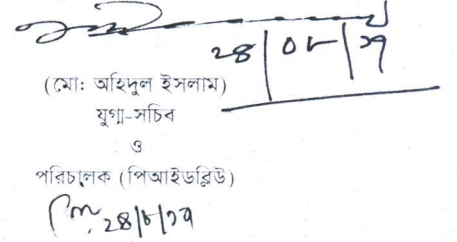 ২৪|০৮|১৭
(মো: অহিদুল ইসলাম)
যুগ্ম-সচিব
ও
পরিচালক (পিআইডব্লিউ)
২৪|৮|১৭